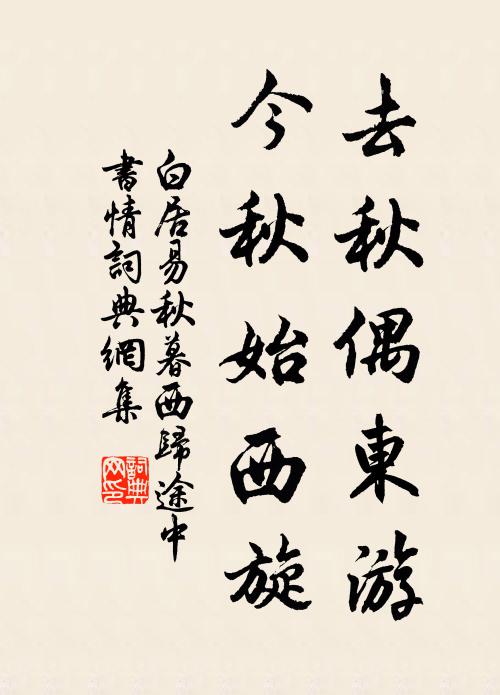 去秋偶東游
今秋始西旋
白居易秋暮西歸途中
書情詞典網集
詞典網印